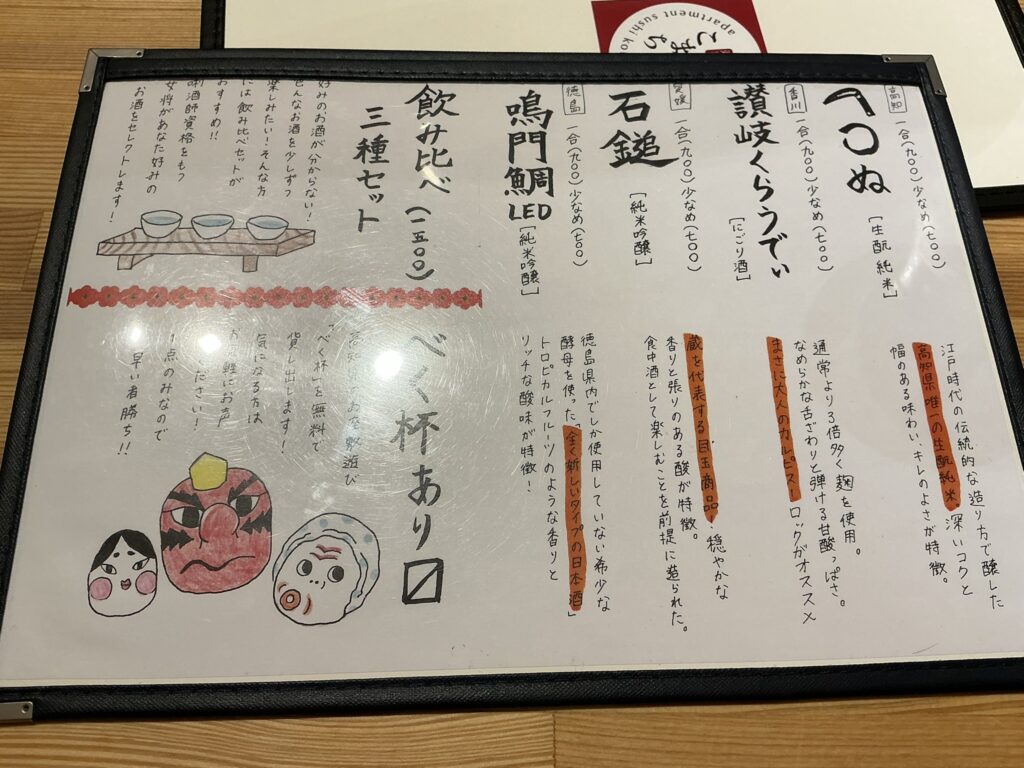 apartment sushi
高知
一合(九〇〇)少なめ(七〇〇)
ぬ
[生酛純米]
江戸時代の伝統的な造り方で醸した
高知県唯一の生酛純米。深いコクと
幅のある味わい、キレのよさが特徴。
香川
一合(九〇〇)少なめ(七〇〇)
讃岐くらうでぃ
[にごり酒]
通常より3倍多く麹を使用。
なめらかな舌ざわりと弾ける甘酸っぱさ。
まさに大人のカルピス!ロックがオススメ
愛媛
一合(九〇〇)少なめ(七〇〇)
石鎚
[純米吟醸]
蔵を代表する目玉商品!穏やかな
香りと張りのある酸が特徴。
食中酒として楽しむことを前提に造られた。
徳島
一合(九〇〇)少なめ(七〇〇)
鳴門鯛
LED
[純米吟醸]
徳島県内でしか使用していない希少な
酵母を使った「全く新しいタイプの日本酒」
トロピカルフルーツのような香りと
リッチな酸味が特徴!
飲み比べ(一五〇〇)
三種セット
好みのお酒が分からない!
色んなお酒を少しずつ
楽しみたい!そんな方
には飲み比べセットが
おすすめ!!
唎酒師資格をもつ
女将があなた好みの
お酒をセレクトします!
べく杯あり〼
お座敷遊び
「べく杯」を無料で
貸し出します!
気になる方は
お気軽にお声
ください!
1点のみなので
早い者勝ち!!